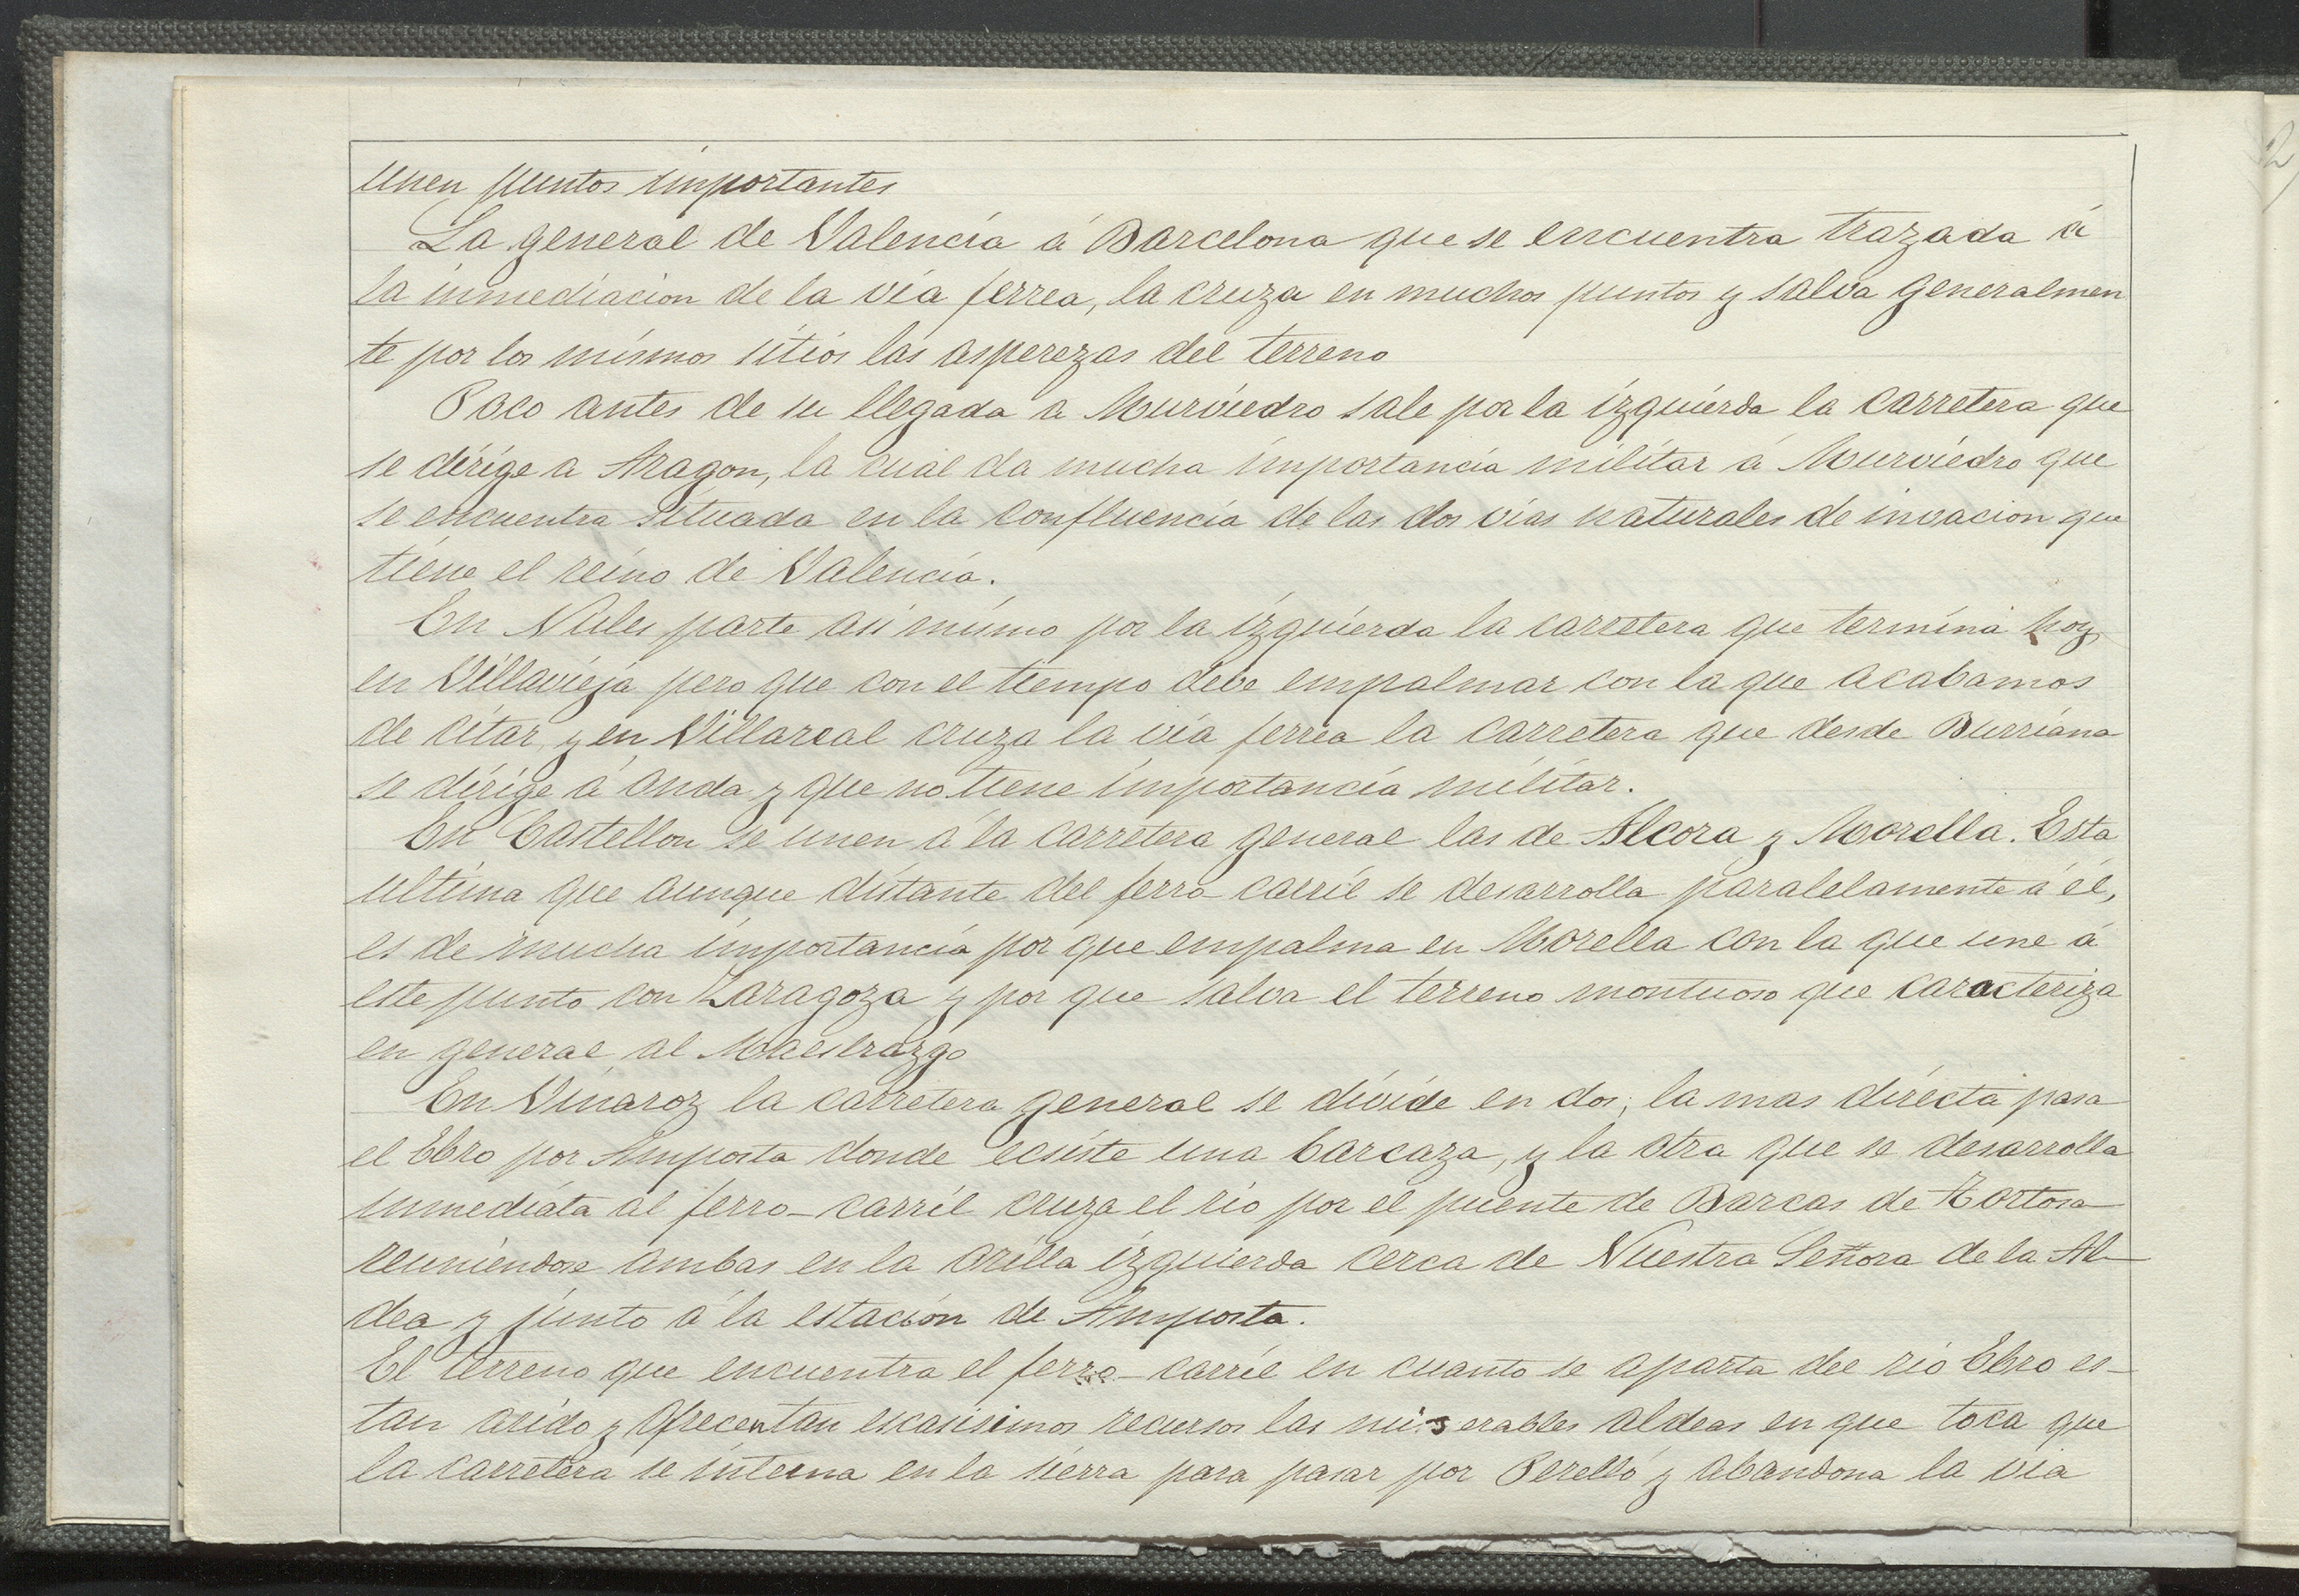 unen puntos importantes
La general de Valencia á Barcelona que se encuentra trazada á
la inmediacion de la via ferrea, la cruza en muchos puntos y salva generalmen
te por los mismos sitios las asperezas del terreno
Poco antes de su llegada a Murviedro sale por la izquierda la carretera que
se dirige a Aragon, la cual da mucha importancia militar á Murviedro que
se encuentra situada en la confluencia de las dos vias naturales de invacion que
tiene el reino de Valencia.
En Nules parte asi mismo por la izquierda la carretera que termina hoy
en Villavieja pero que con el tiempo debe empalmar con la que acabamos
de citar, y en Villareal cruza la via ferrea la carretera que desde Burriana
se dirige á Onda y que no tiene importancia militar.
En Castellon se unen á la carretera general las de Alcora y Morella. Esta
ultima que aunque distante del ferro-carril se desarrolla paralelamente á él,
es de mucha importancia por que empalma en Morella con la que une á
este punto con Zaragoza y por que salva el terreno montuoso que caracteriza
en general al Maestrazgo
En Vinaroz la carretera general se divide en dos; la mas directa pasa
el Ebro por Amposta donde ecsiste una barcaza, y la otra que se desarrolla
inmediata al ferro-carril cruza el rio por el puente de Barcas de Tortosa
reuniendose ambas en la orilla izquierda cerca de Nuestra Señora de la Al-
dea y junto á la estación de Amposta.
El terreno que encuentra el ferro-carril en cuanto se aparta del rio Ebro es-
tan arido y ofrecen tan escasisimos recursos las miserables aldeas en que toca que
la carretera se interna en la sierra para pasar por Perelló y abandona la via